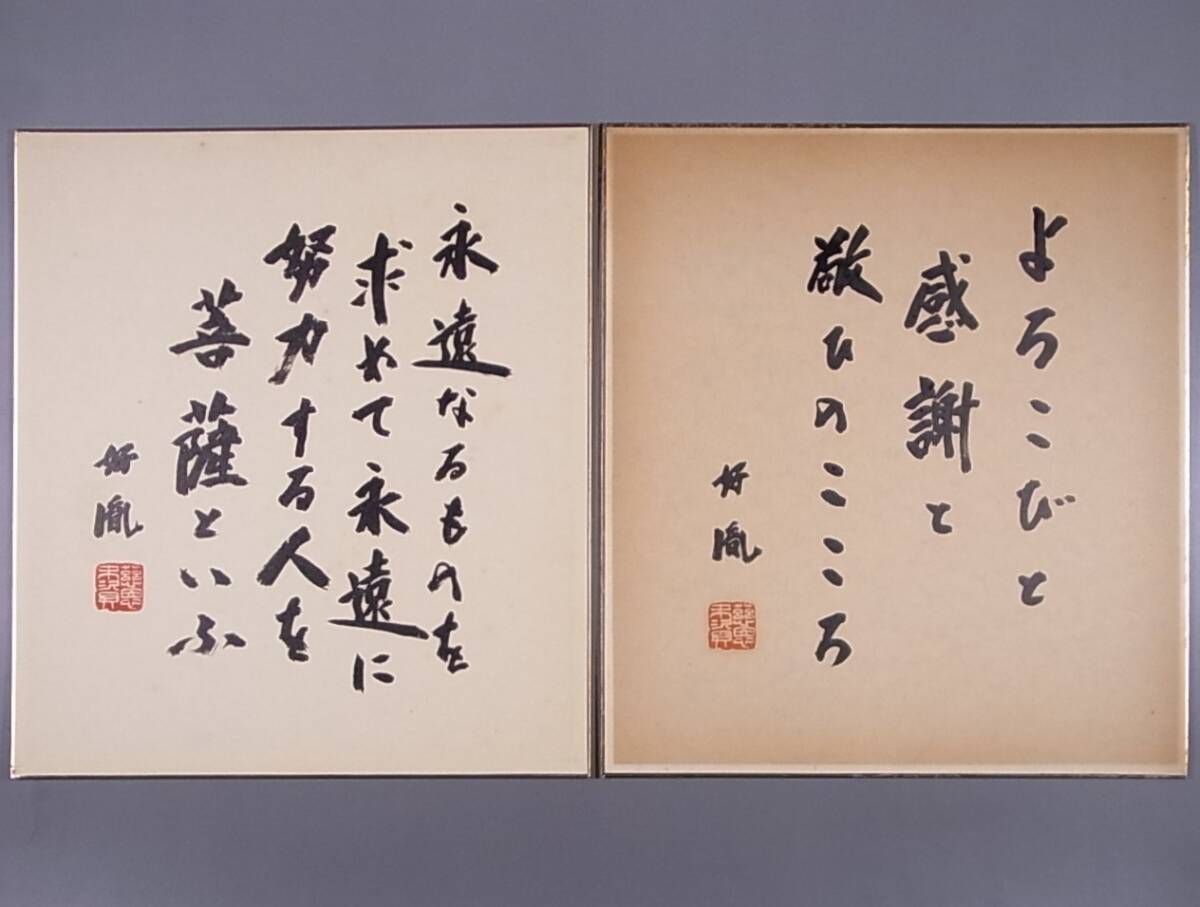 よろこびと
感謝と
敬ひのこころ
好胤
永遠なるものを
求めて永遠に
努力する人を
菩薩といふ
好胤